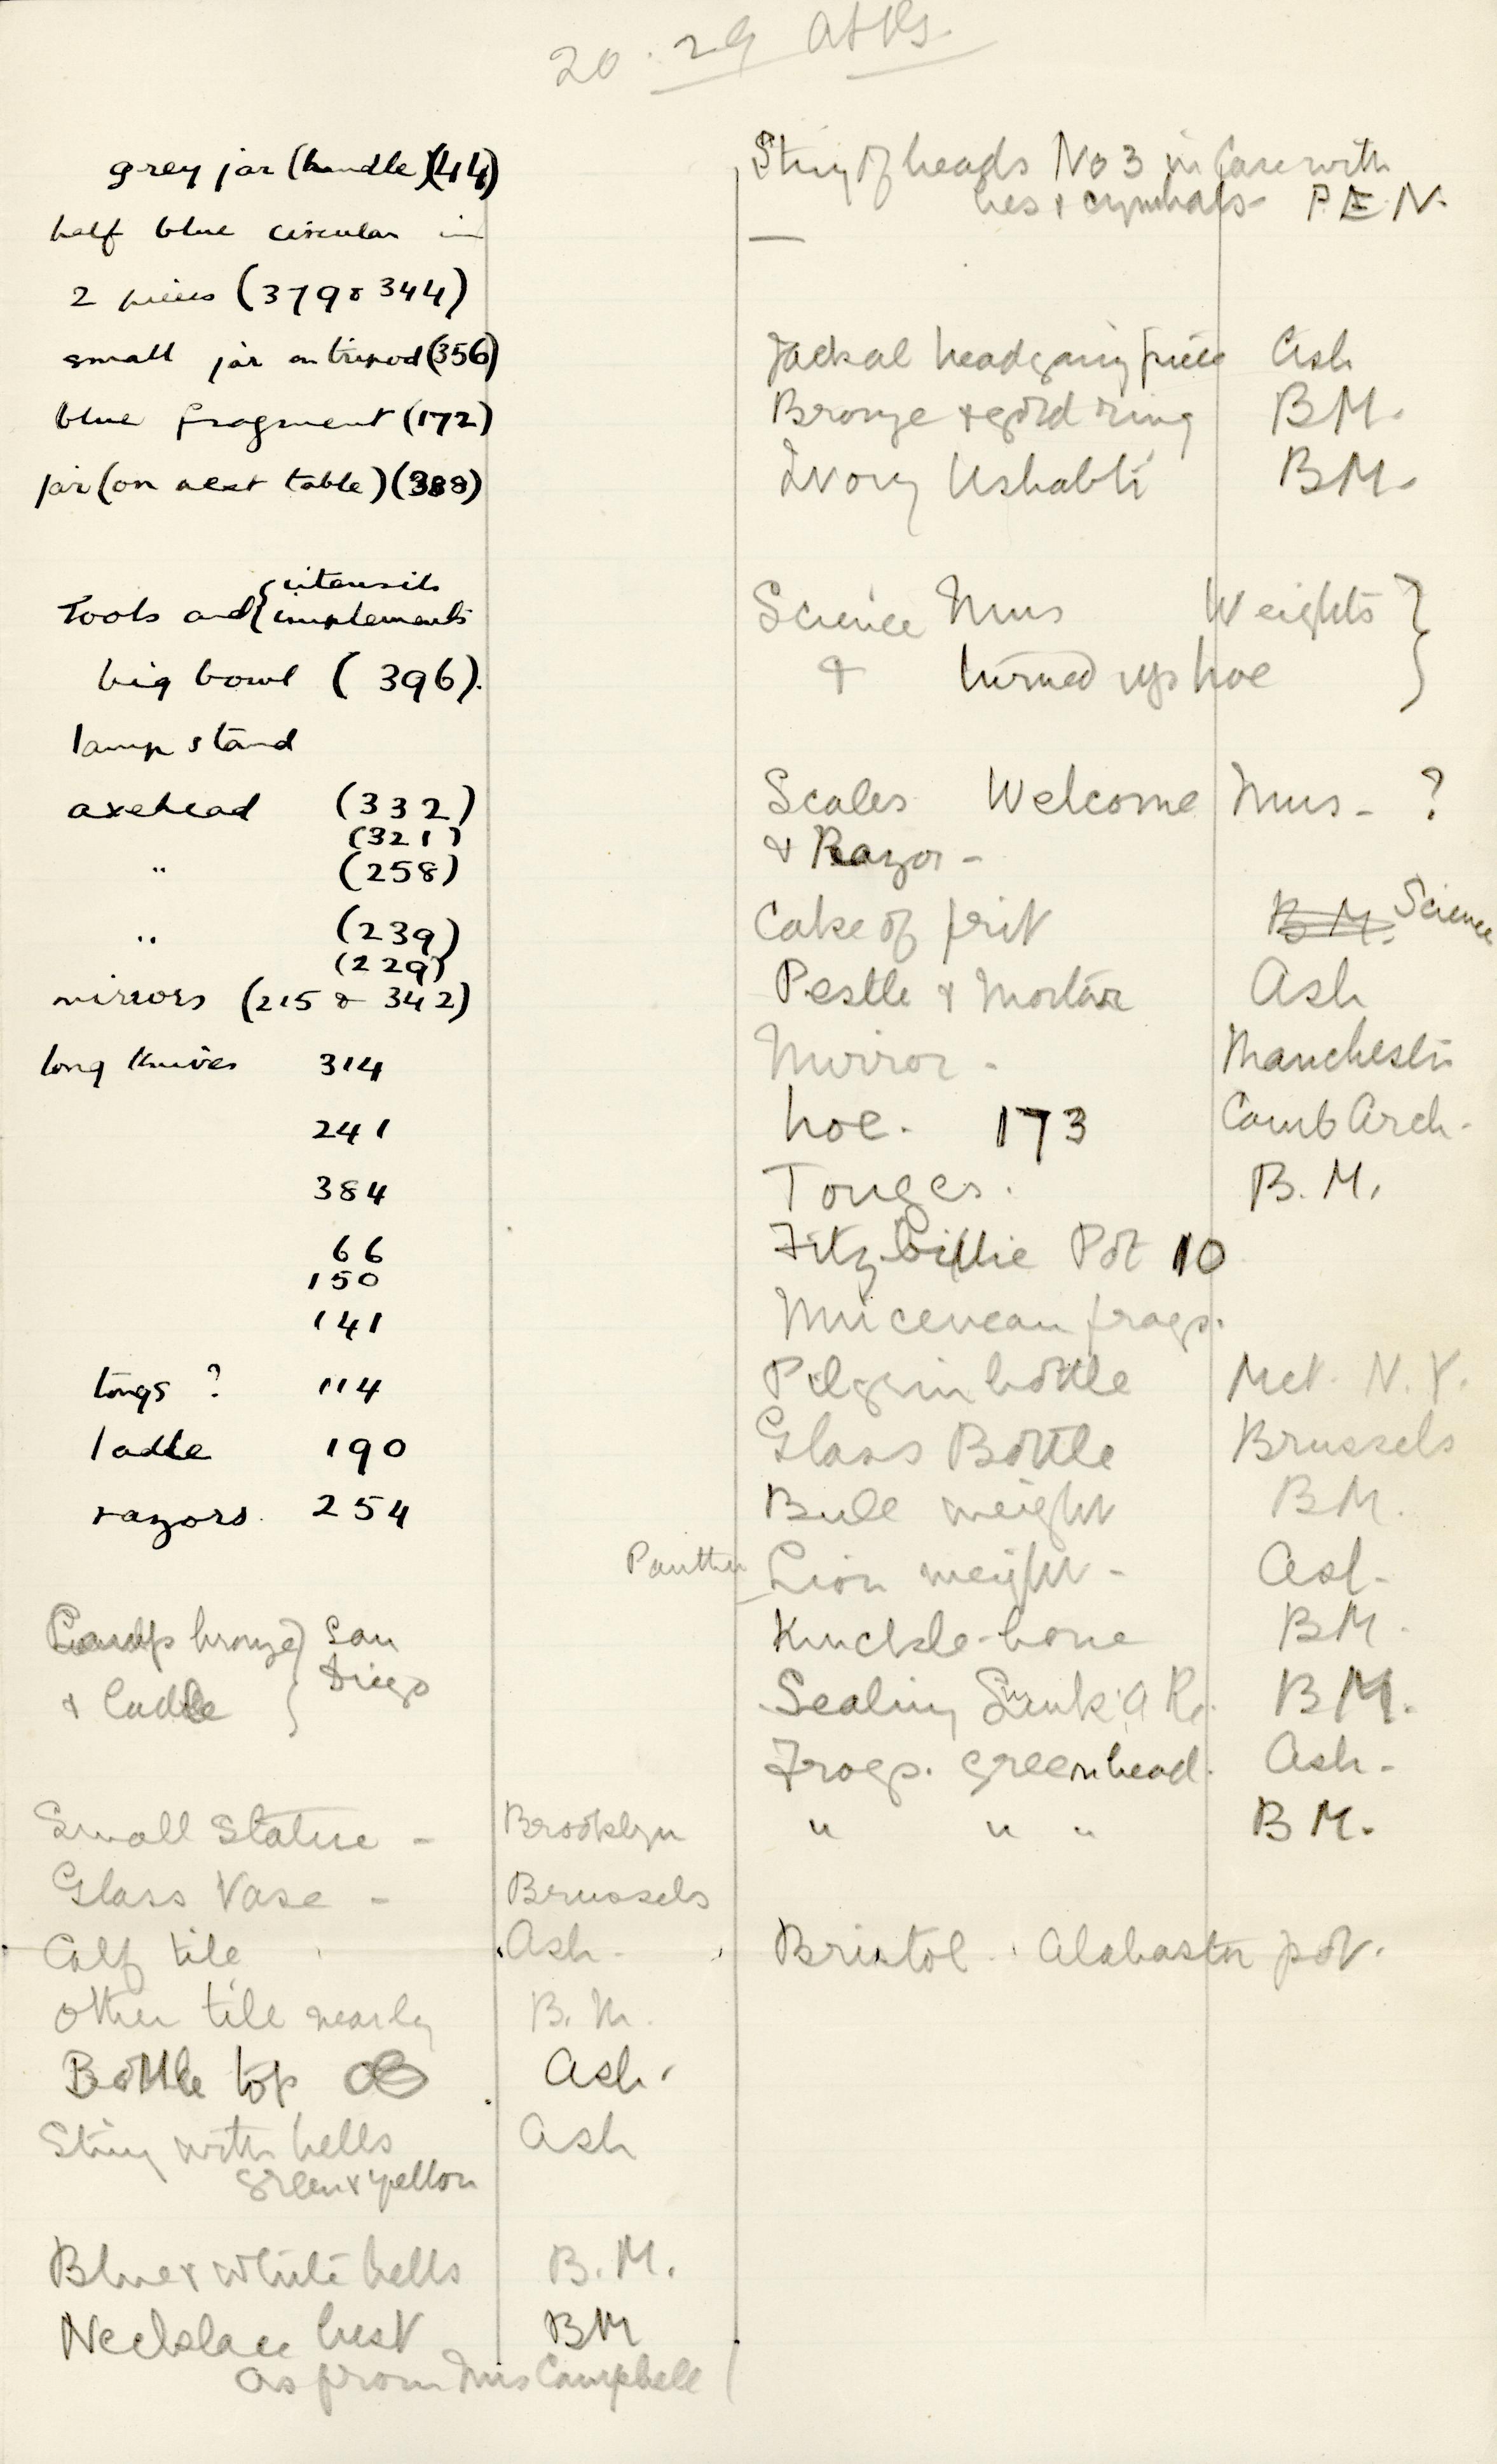 20.29
grey jar (handle) (44)
half blue circular in
2 pieces (379 & 344)
small jar on tripod (356)
blue fragment (172)
jar (on next table) (388)
utensils
Tools and { implements
big bowl (396).
lamp stand
axehead (332)
(321)
" (258)
" (239)
(229)
mirrors (215 & 342)
long knives 314
241
384
66
150
141
tongs ? 114
ladle 190
razors. 254
bronze } San
& Ladle } Diego
Small Statue - Brooklyn
Glass Vase - Brussels
Calf tile Ash -
Other tile nearly B.M.
Bottle top Ash.
String with bells Ash
Green & yellow
Blue & white bells B.M.
Necklace best BM
as from Mrs Campbell
String of beads No 3 in case with
& cymbals - P.E.N.
Jackal head gaming piece Ash
Bronze & gold ring BM.
Ivory Ushabti BM.
Science Mus Weights }
& turned up hoe }
Scales Welcome Mus - ?
& Razor -
Cake of frit B.M. Science
Pestle & Mortar Ash
Mirror - Manchester
hoe. 173 Camb Arch.
Tonges. B.M.
Fitz Pot 10
Mycenean frags.
Pilgrim bottle Met. N.Y.
Glass Bottle Brussels
Bull weight BM.
Panther Lion weight - Ash -
Knuckle-bone BM.
Sealing BM.
Frogs. green head. Ash -
" " " BM.
Bristol. Alabaster pot.